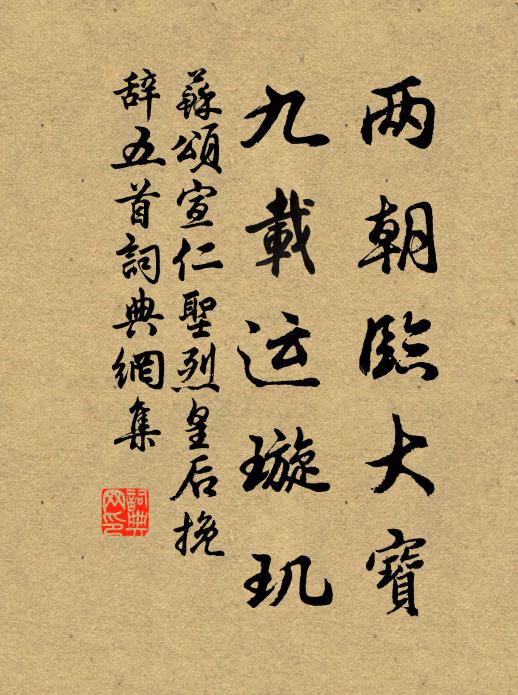 两朝臨大寶
九載运璇玑
蘇頌宣仁聖烈皇后挽
辞五首詞典網集
詞典网印